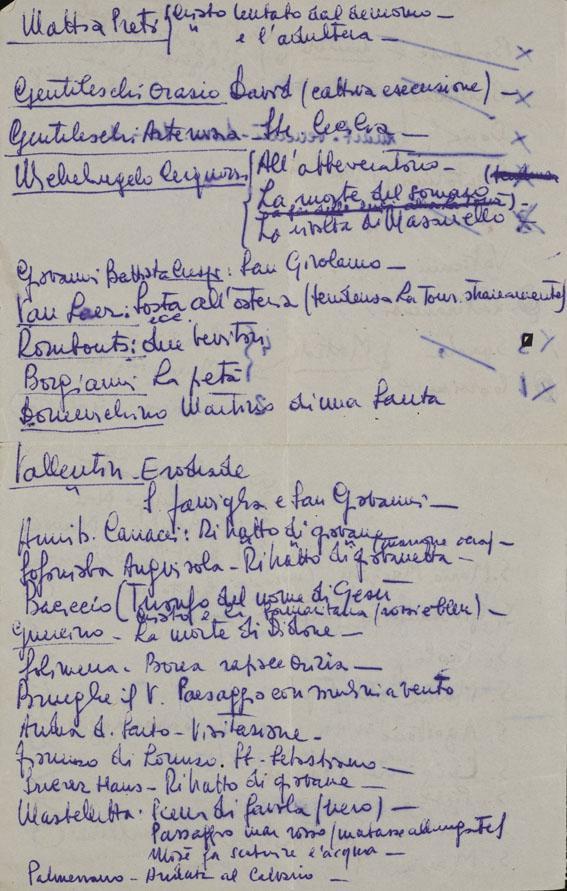 Mattia Preti { Cristo tentato dal demonio –
" e l'adultera –
Gentileschi Orazio David (cattiva esecuzione) –
Gentileschi Artemisia – Sta Cecilia –
Michelangelo Cerquozzi { All'abbeveratoio –
La morte del somaro –
La rivolta di Masaniello –
Giovanni Battista Crespi: San Girolamo –
Van Laer: Sosta all'osteria (tendenza La Tour. stranamente)
ecc
Rombouts: due bevitori
Borgianni La pietà
Domenichino Martirio di una Santa
Vallentin – Erodiade
S. famiglia e San Giovanni –
Annib. Carracci: Ritratto di giovane
Sofonisba Anguissola – Ritratto di giovanetta –
Baciccio (Trionfo del nome di Gesù
Cristo e la Samaritana (rossi e bleu) –
Guercino – La morte di Didone –
Solimena – Borea rapisce Orizia –
Brueghel il V. Paesaggio con mulini a vento
Andrea d. Sarto – Visitazione –
Lorenzo di Lorenzo. St. Sebastiano –
Hans – Ritratto di giovane –
Mastelletta. Scena di favola (nero) –
Passaggio mar rosso
Mosè fa scaturire l'acqua –
Palmezzano – Andata al Calvario –